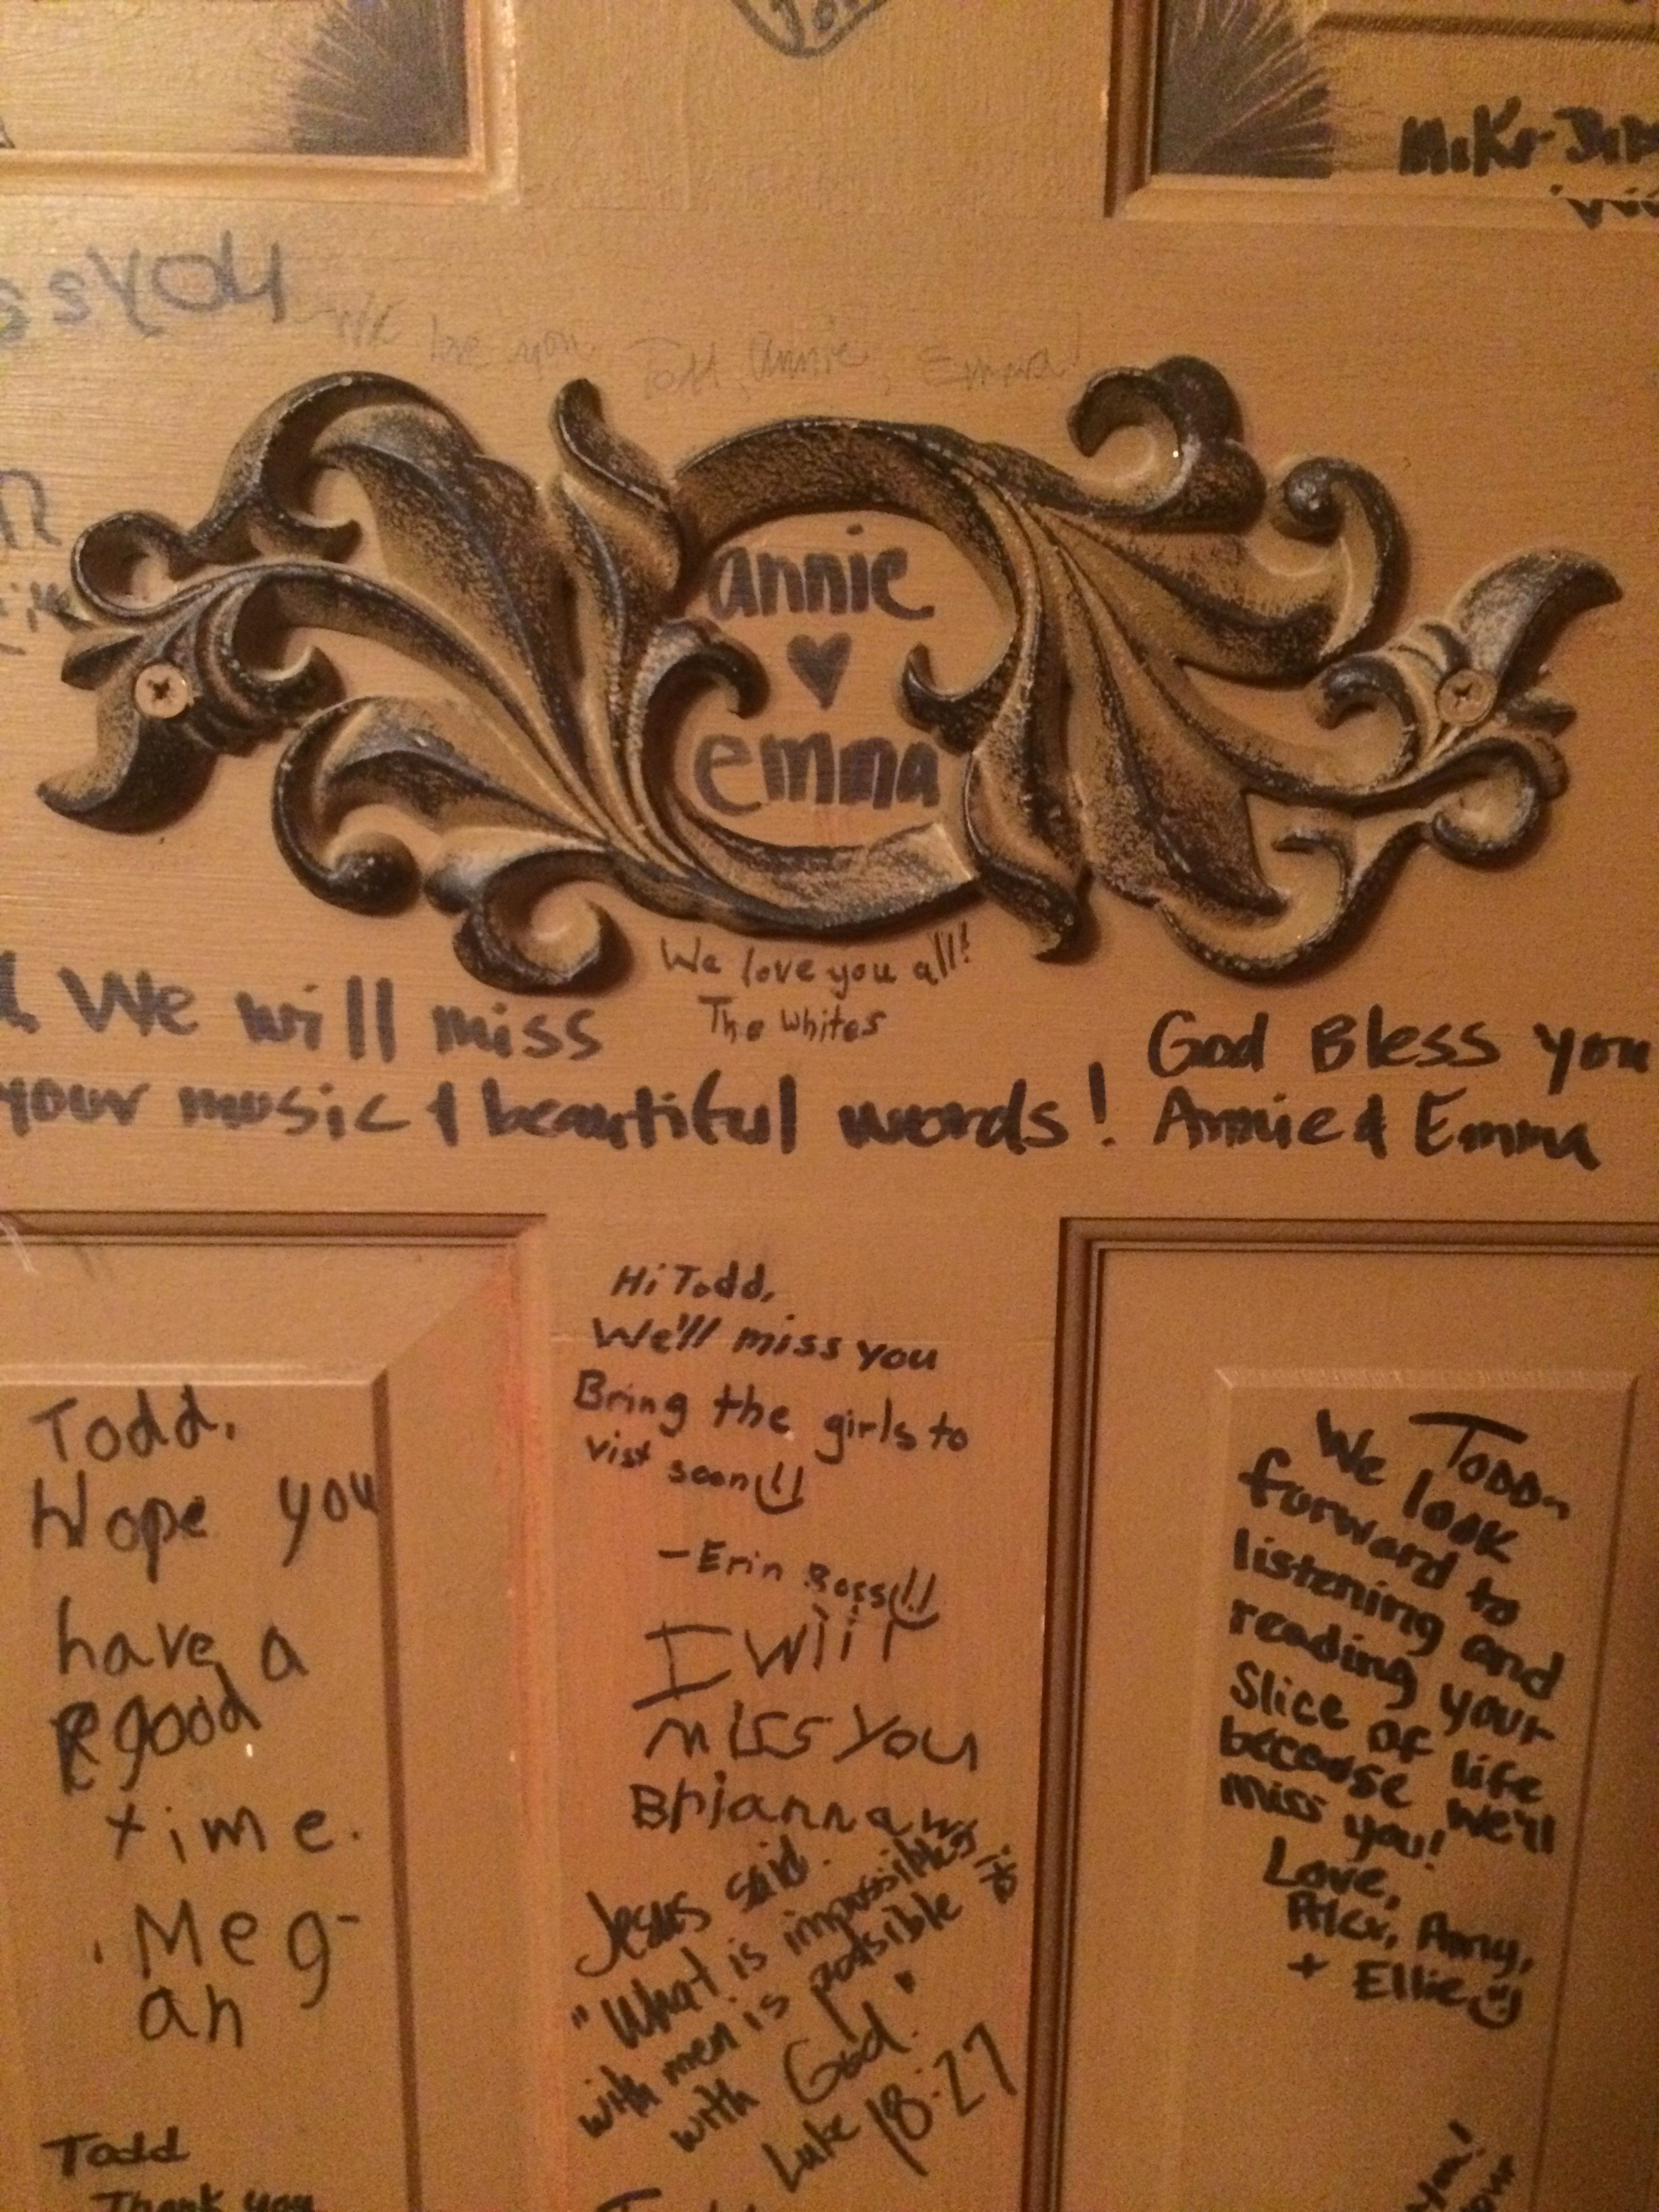 Mike
ss you
We love you Todd, Annie, Emma!
annie
♥
emma
We love you all!
The Whites
We will miss
your music & beautiful words!
God Bless you
Annie & Emma
Hi Todd,
We'll miss you
Bring the girls to
vist soon!!
-Erin Ross!!
I will
miss you
Brianna W
Jesus said
"What is impossible
with men is possible
with God."
Luke 18:27
Todd,
Hope you
have a
good
time.
Meg-
an
Todd
Thank you
Todd-
We look
forward to
listening and
reading your
Slice of life
because we'll
miss you!
Love,
Alex, Amy,
+ Ellie